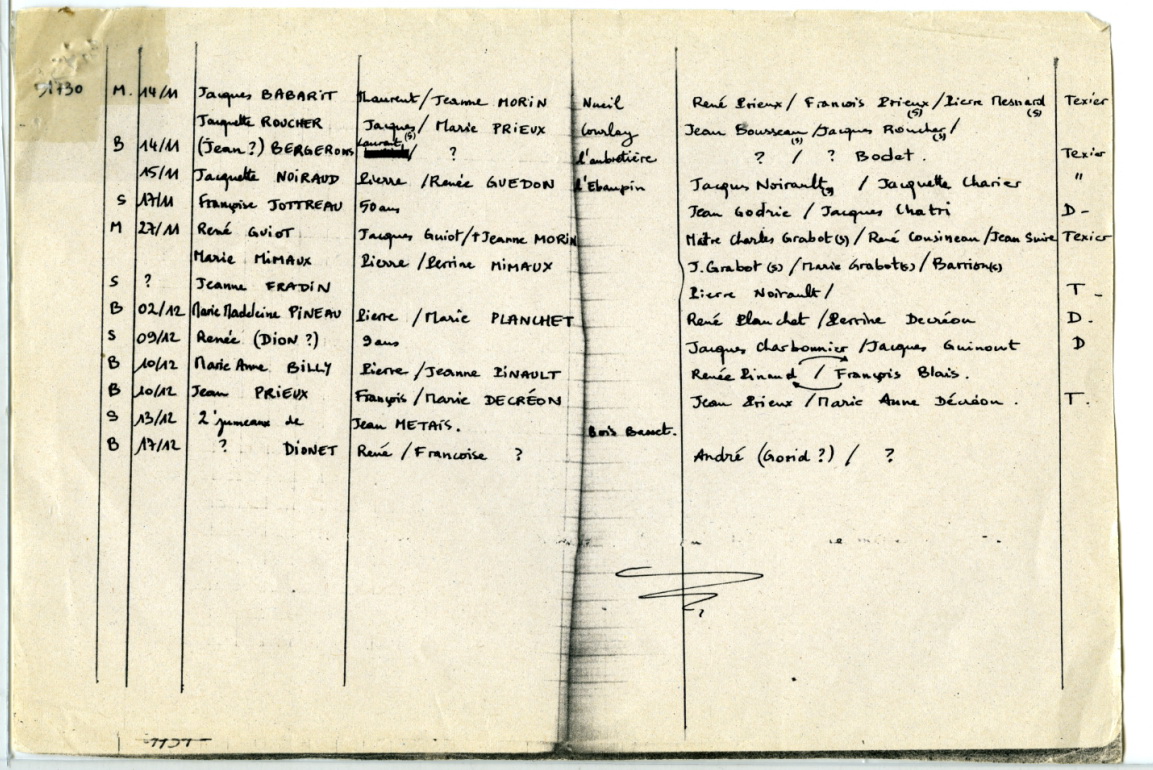 1730 M. 14/11 Jacques BABARIT Laurent/Jeanne MORIN Nueil René Prieux/ François Prieux(s)/Pierre Mesnard(s) Texier
Jacquette ROUCHER Jacques(s)/ Marie PRIEUX Courlay Jean Bousseau(s)/Jacques Roucher(s)/
B 14/11 (Jean ?) BERGERONS Laurent/ ? l'aubretière ? / ? Bodet. Texier
15/11 Jacquette NOIRAUD Pierre /Renée GUEDON l'Ebaupin Jacques Noirault(s) / Jacquette Charier "
S 17/11 Françoise JOTTREAU 50 ans Jean Godrie / Jacques Chatri D -
M 27/11 René GUIOT Jacques Guiot/†Jeanne MORIN Maître Charles Grabot(s)/ René Cousineau /Jean Suire Texier
Marie MIMAUX Pierre /Perrine MIMAUX J.Grabot (s) /Marie Grabot(s)/ Barrion(s)
S ? Jeanne FRADIN Pierre Noirault/ T -
B 02/12 Marie Madeleine PINEAU Pierre / Marie PLANCHET René Planchet /Perrine Decréon D.
S 09/12 Renée (Dion ?) 9 ans Jacques Charbonnier /Jacques Guinout D
B 10/12 Marie Anne BILLY Pierre /Jeanne PINAULT Renée Pinaud / François Blais.
B 10/12 Jean PRIEUX François /Marie DECRÉON Jean Prieux /Marie Anne Décréon. T.
S 13/12 2 jumeaux de Jean METAIS. Bois Basset.
B 17/12 ? DIONET René / Francoise ? André (Gorid ?) / ?